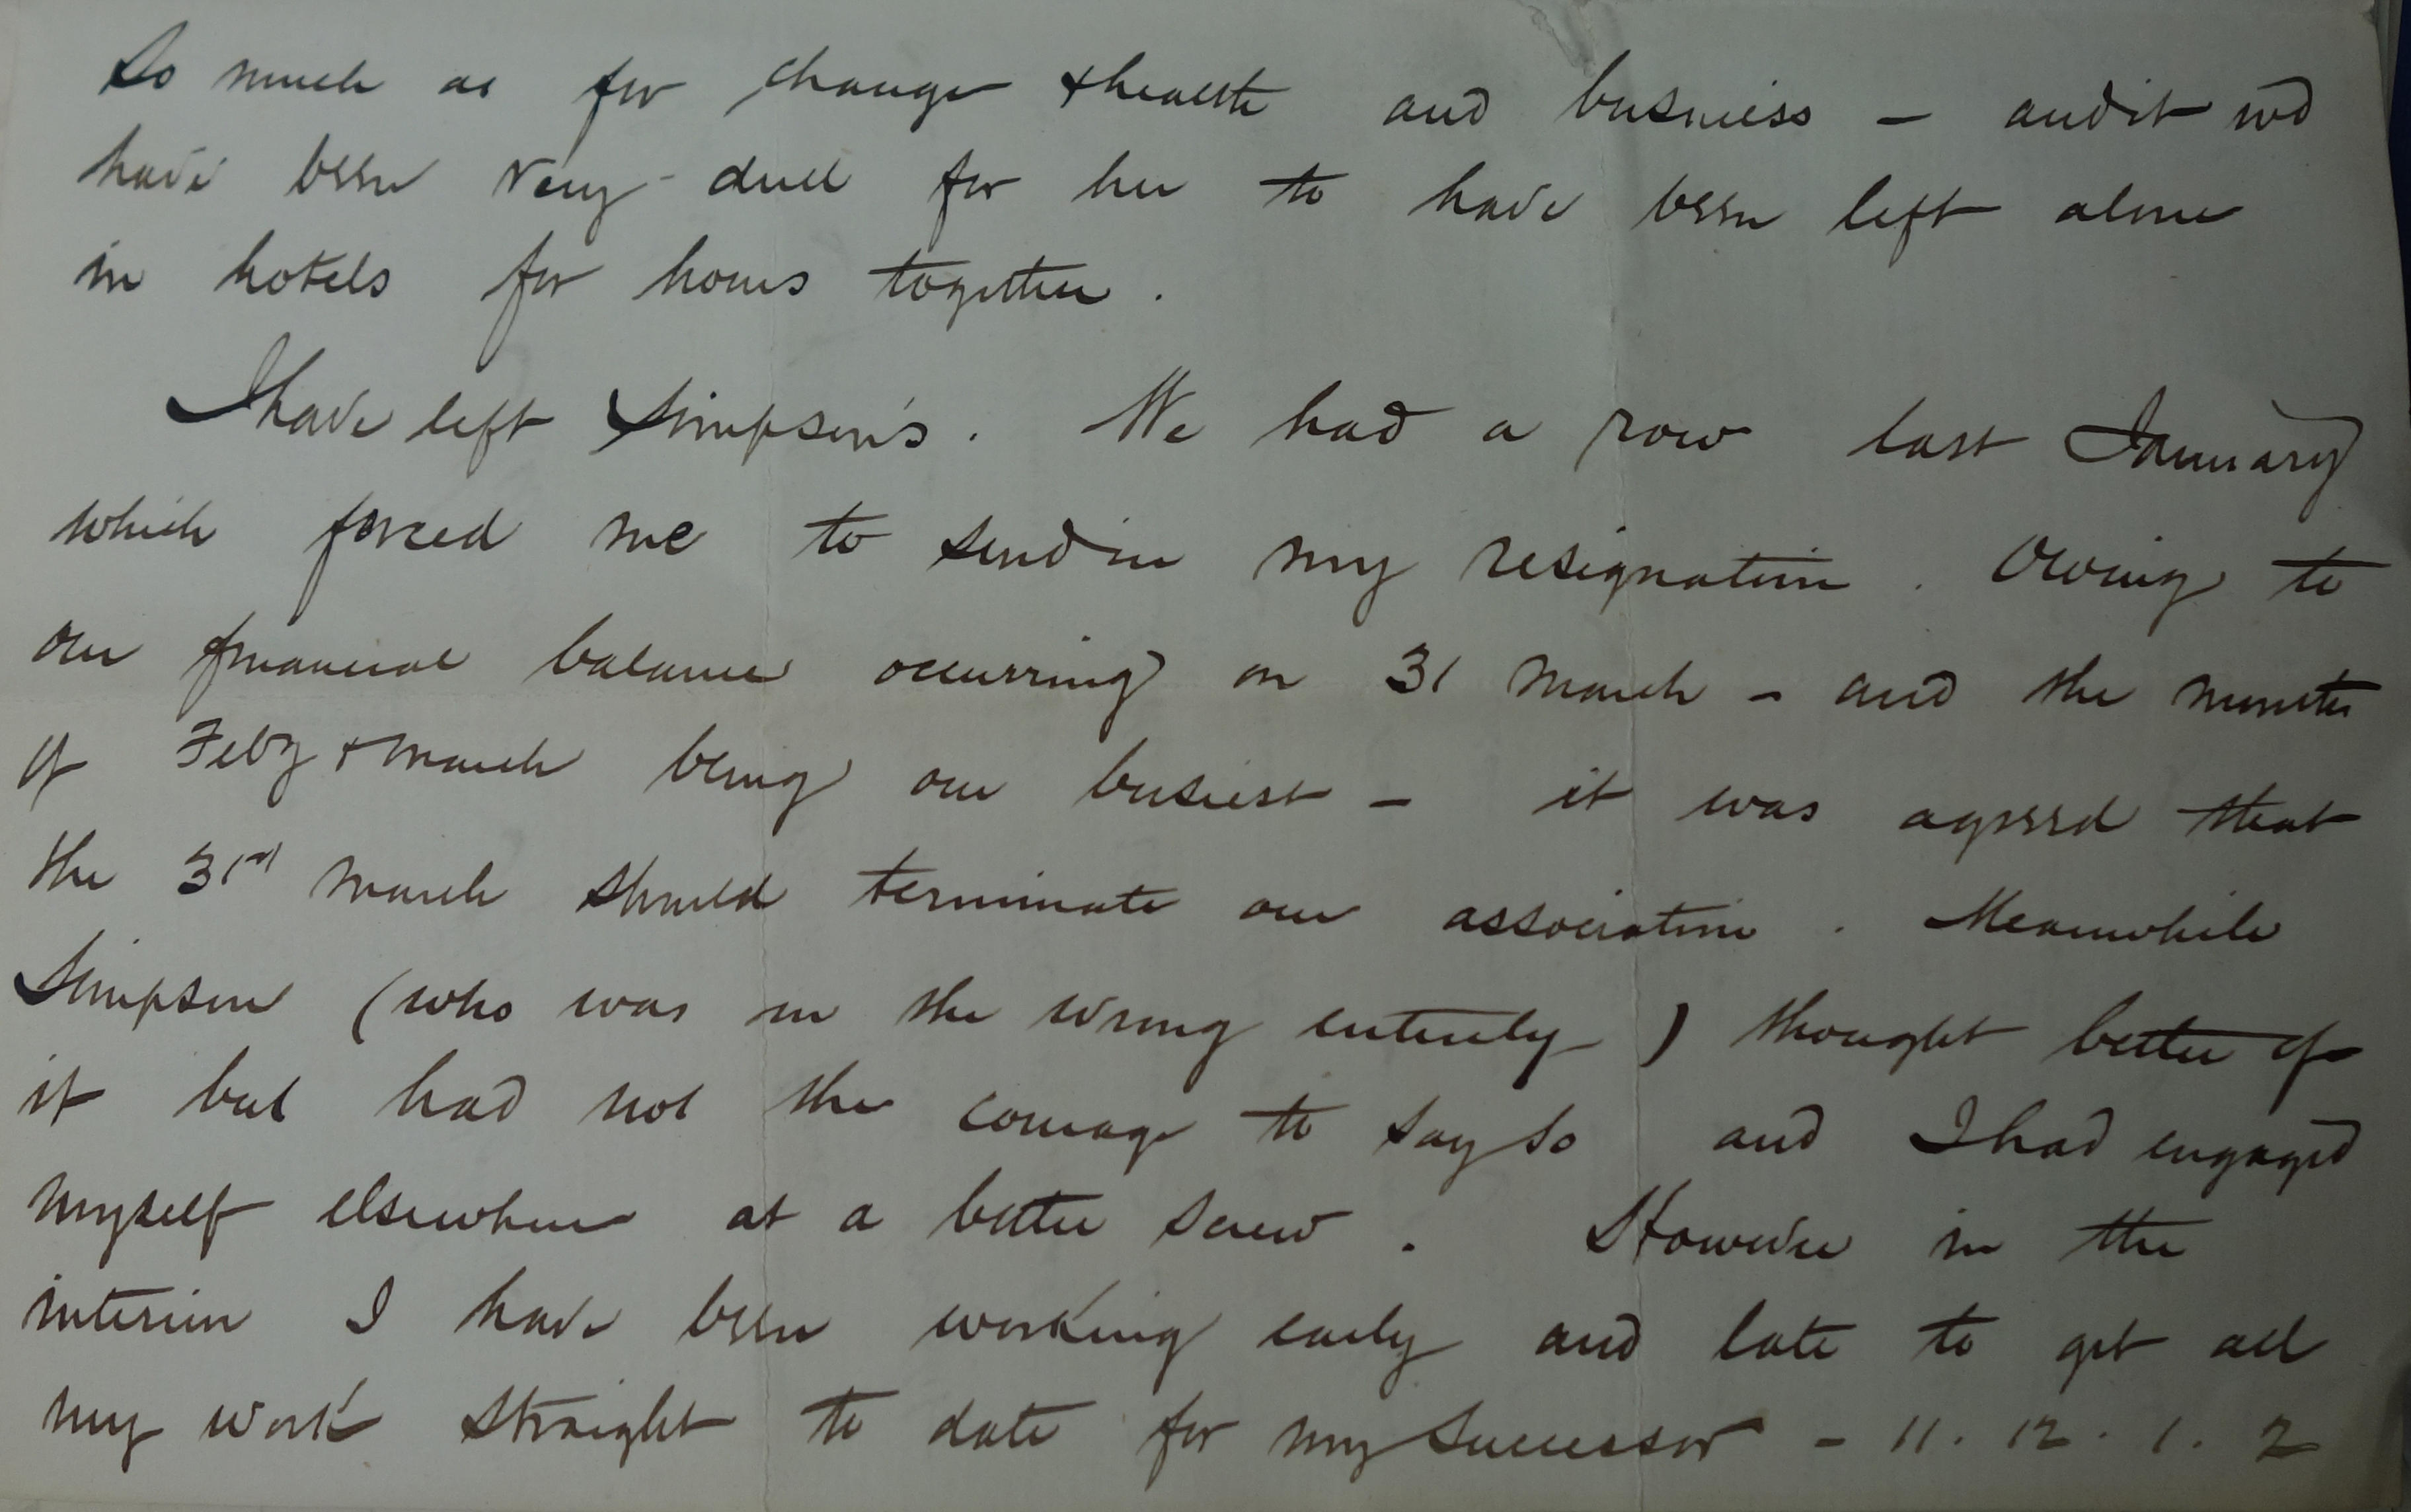 So much as for change & health and business – and it wd
have been very dull for her to have been left alone
in hotels for hours together.
I have left Simpson's. We had a row last January
which forced me to send in my resignation. Owing to
our financial balance occurring on 31 March – and the months
of Feby & March being our busiest – it was agreed that
the 31st March should terminate our association. Meanwhile
Simpson (who was in the wrong entirely) thought better of
it but had not the courage to say so and I had engaged
myself elsewhere at a better screw. However in the
interim I have been working early and late to get all
my work straight to date for my successor – 11. 12. 1. 2